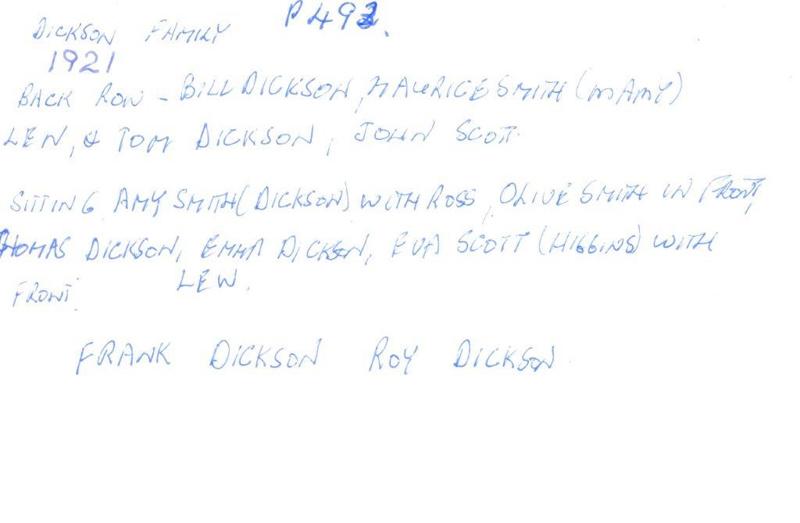 DICKSON FAMILY P493.
1921
BACK ROW - BILL DICKSON, MAURICE SMITH (m AMY)
LEN, & TOM DICKSON, JOHN SCOTT.
SITTING AMY SMITH (DICKSON) WITH ROSS, OLIVE SMITH IN FRONT,
THOMAS DICKSON, EMMA DICKSON, EVA SCOTT (HIGGINS) WITH
LEW.
FRONT.
FRANK DICKSON ROY DICKSON